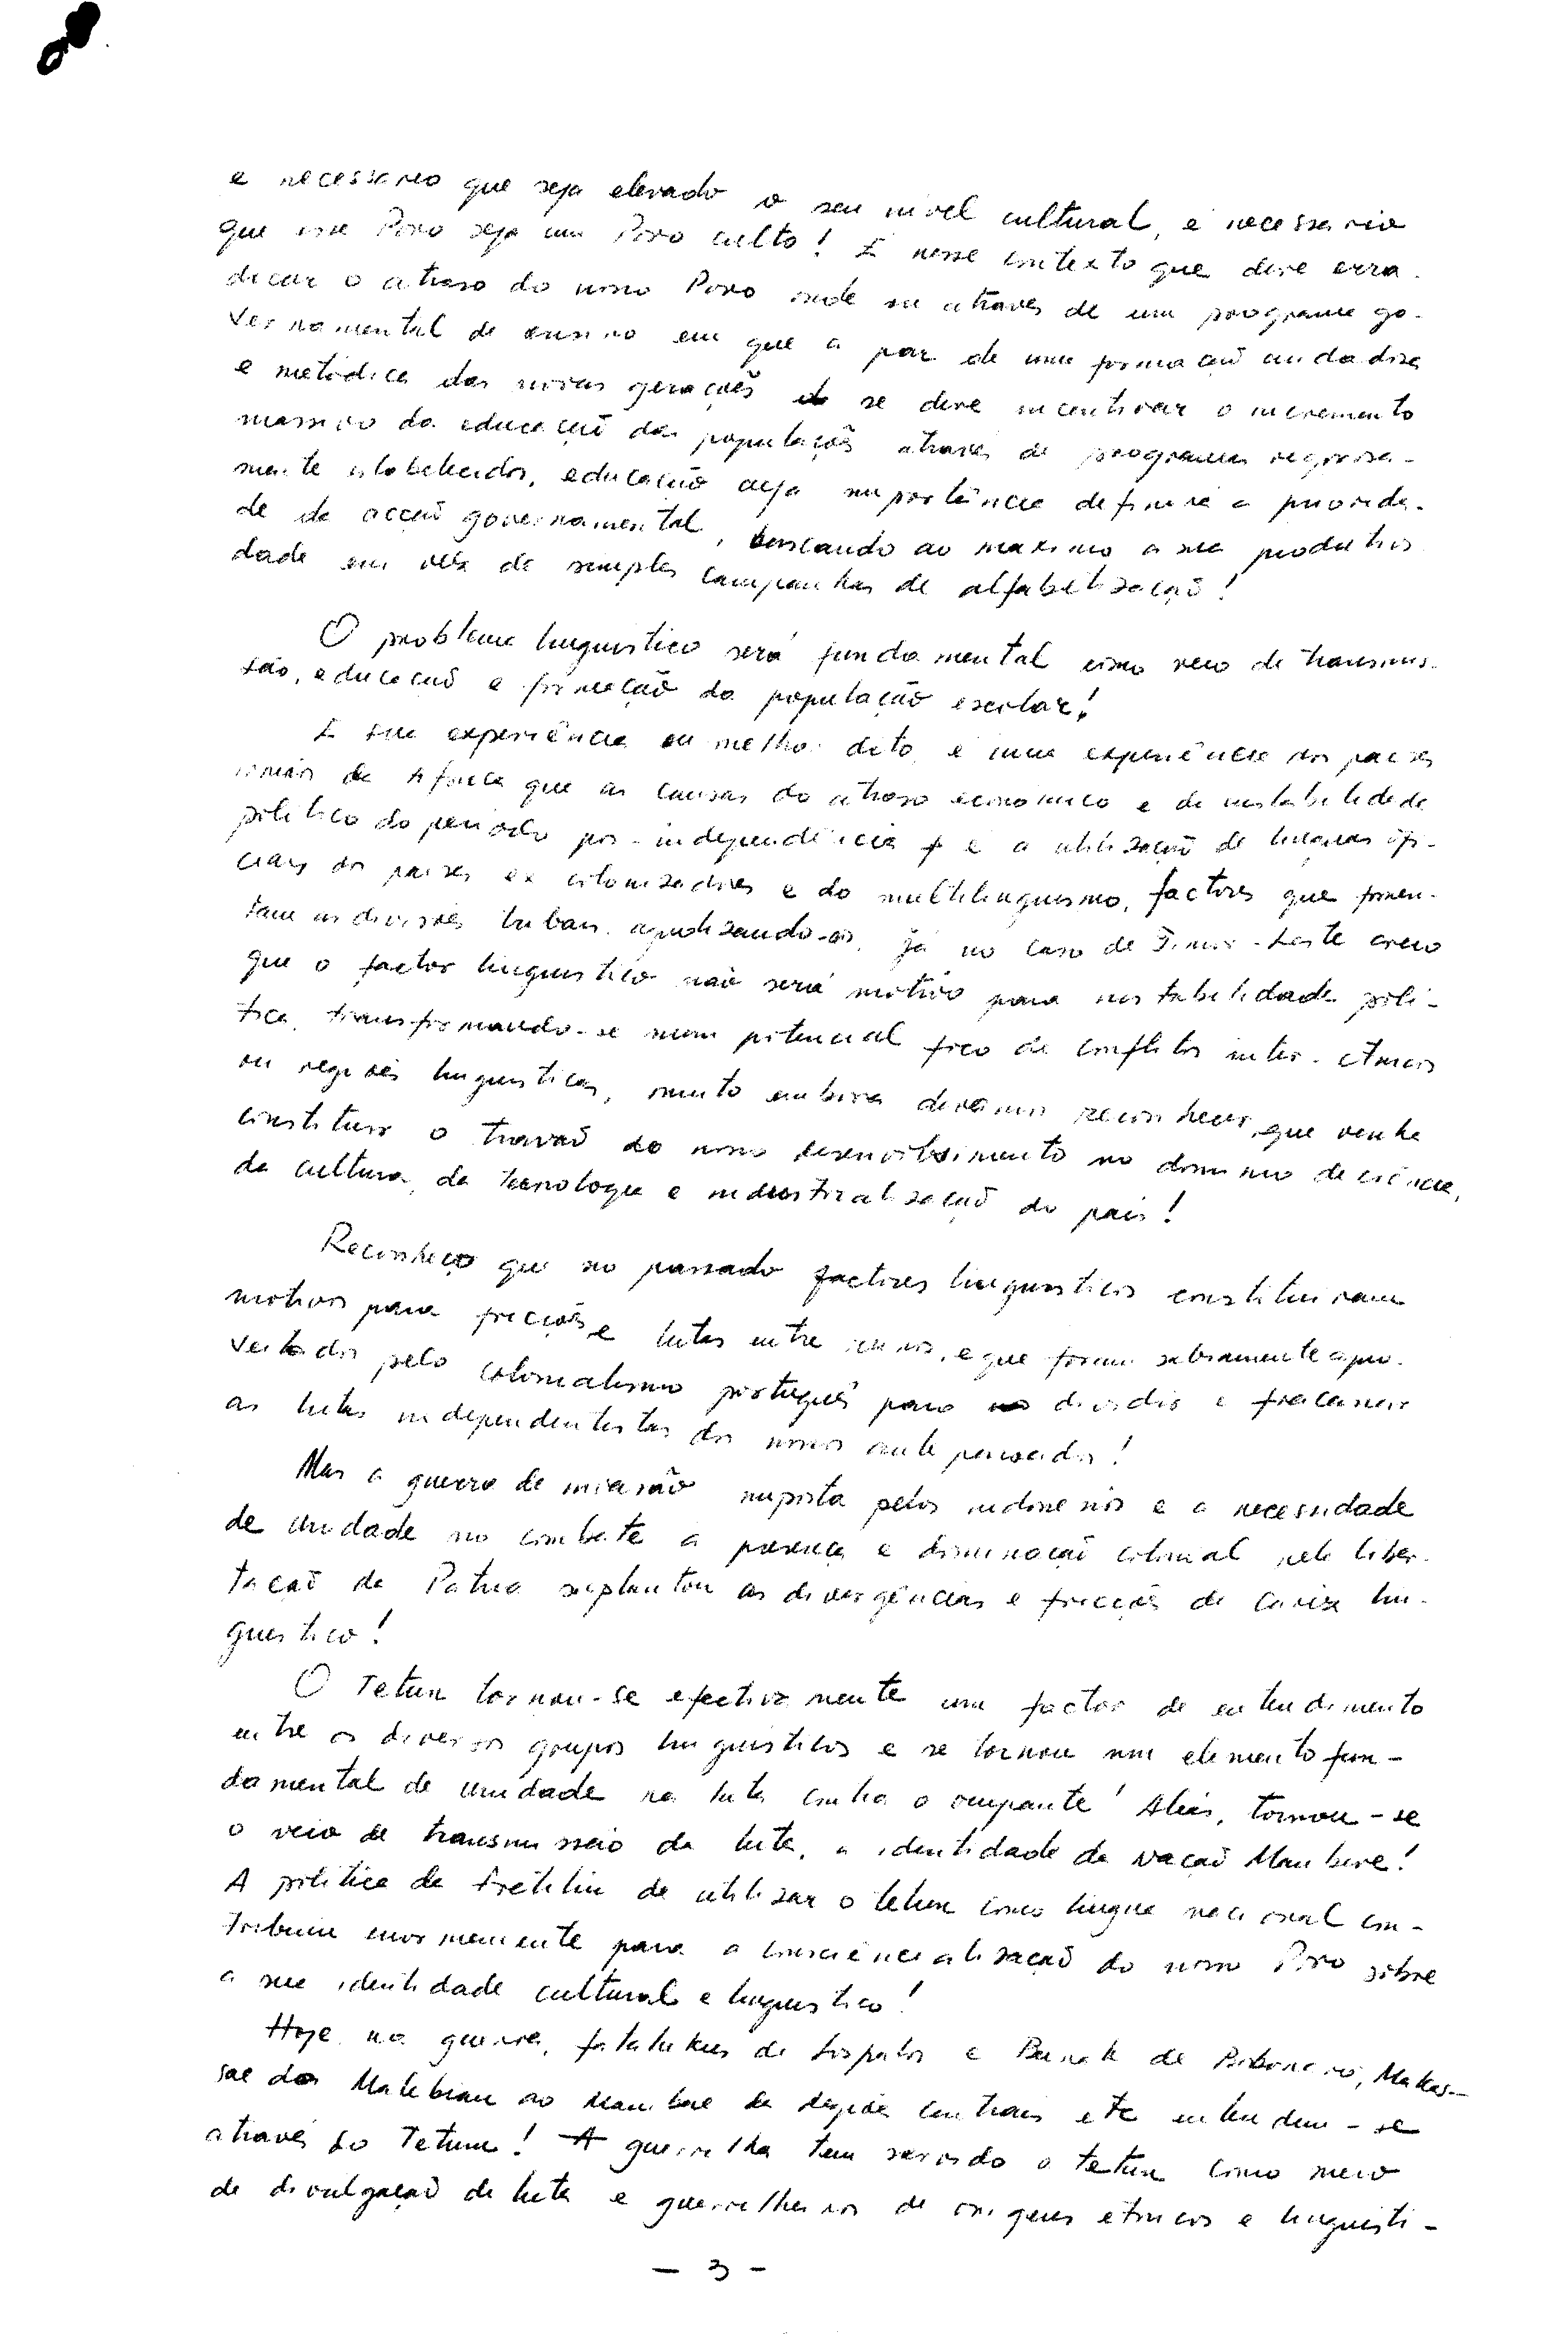 e necessario que seja elevado o seu nivel cultural, e necessario
que esse Povo seja um Povo culto! E nesse contexto que deve erra-
dicar o atraso do nosso Povo onde só atraves de um programa go-
vernamental de ensino em que a par de uma formação cuidadosa
e metódica das novas gerações se deve incentivar o incremento
massivo da educação das populações através de programas rigorosa-
mente estabelecidos, educação cuja importância definirá a priorida-
de da acção governamental, buscando ao maximo a sua produtivi
dade em vez de simples campanhas de alfabetização!
O problema linguistico será fundamental como veio de transmis-
são, educação e formação da população escolar!
E sua experiência ou melhor dito, é uma experiência dos paises
irmãos de Africa que as causas do atraso económico e da instabilidade
politica do periodo pos-independência é a utilização de linguas ofi-
ciais dos paises ex colonizadores e do multilinguismo, factores que fomen-
tam as divisões tribais, agudizando-as. Já no caso de Timor-Leste creio
que o factor linguistico não será motivo para instabilidade poli-
tica, transformando-se num potencial foco de conflitos inter-etnicos
ou regiões linguisticas, muito embora devamos reconhecer, que venha
constituir o travão do nosso desenvolvimento no dominio da ciência,
da cultura, da tecnologia e industrialização do pais!
Reconheço que no passado factores linguisticos constituiram
motivos para fricções e lutas entre irmãos, e que foram sabiamente apro-
veitados pelo colonialismo português para dividir e fracassar
as lutas independentistas dos nossos antepassados!
Mas a guerra de invasão imposta pelos indonesios e a necessidade
de unidade no combate a presença e dominação colonial pela liber-
tação da Patria suplantou as divergências e fricções de cariz lin-
guistico!
O Tetum tornou-se efectivamente um factor de entendimento
entre os diversos grupos linguisticos e se tornou num elemento fun-
damental de unidade na luta contra o ocupante! Aliás, tornou-se
o veio de transmissão da luta, a identidade da Nação Maubere!
A politica da Fretilin de utilizar o tetum como lingua nacional con-
tribuiu enormemente para a consciêncialização do nosso Povo sobre
a sua identidade cultural e linguistico!
Hoje na guerra, fatalukus de Lospalos e Bunak de Bobonaro, Makas-
sae do Matebian ao Mambae da regiões centrais etc entendem-se
através do Tetum! A guerrilha tem servido o tetum como meio
de divulgação da luta e guerrilheiros de origens etnicas e linguisti-
- 3 -